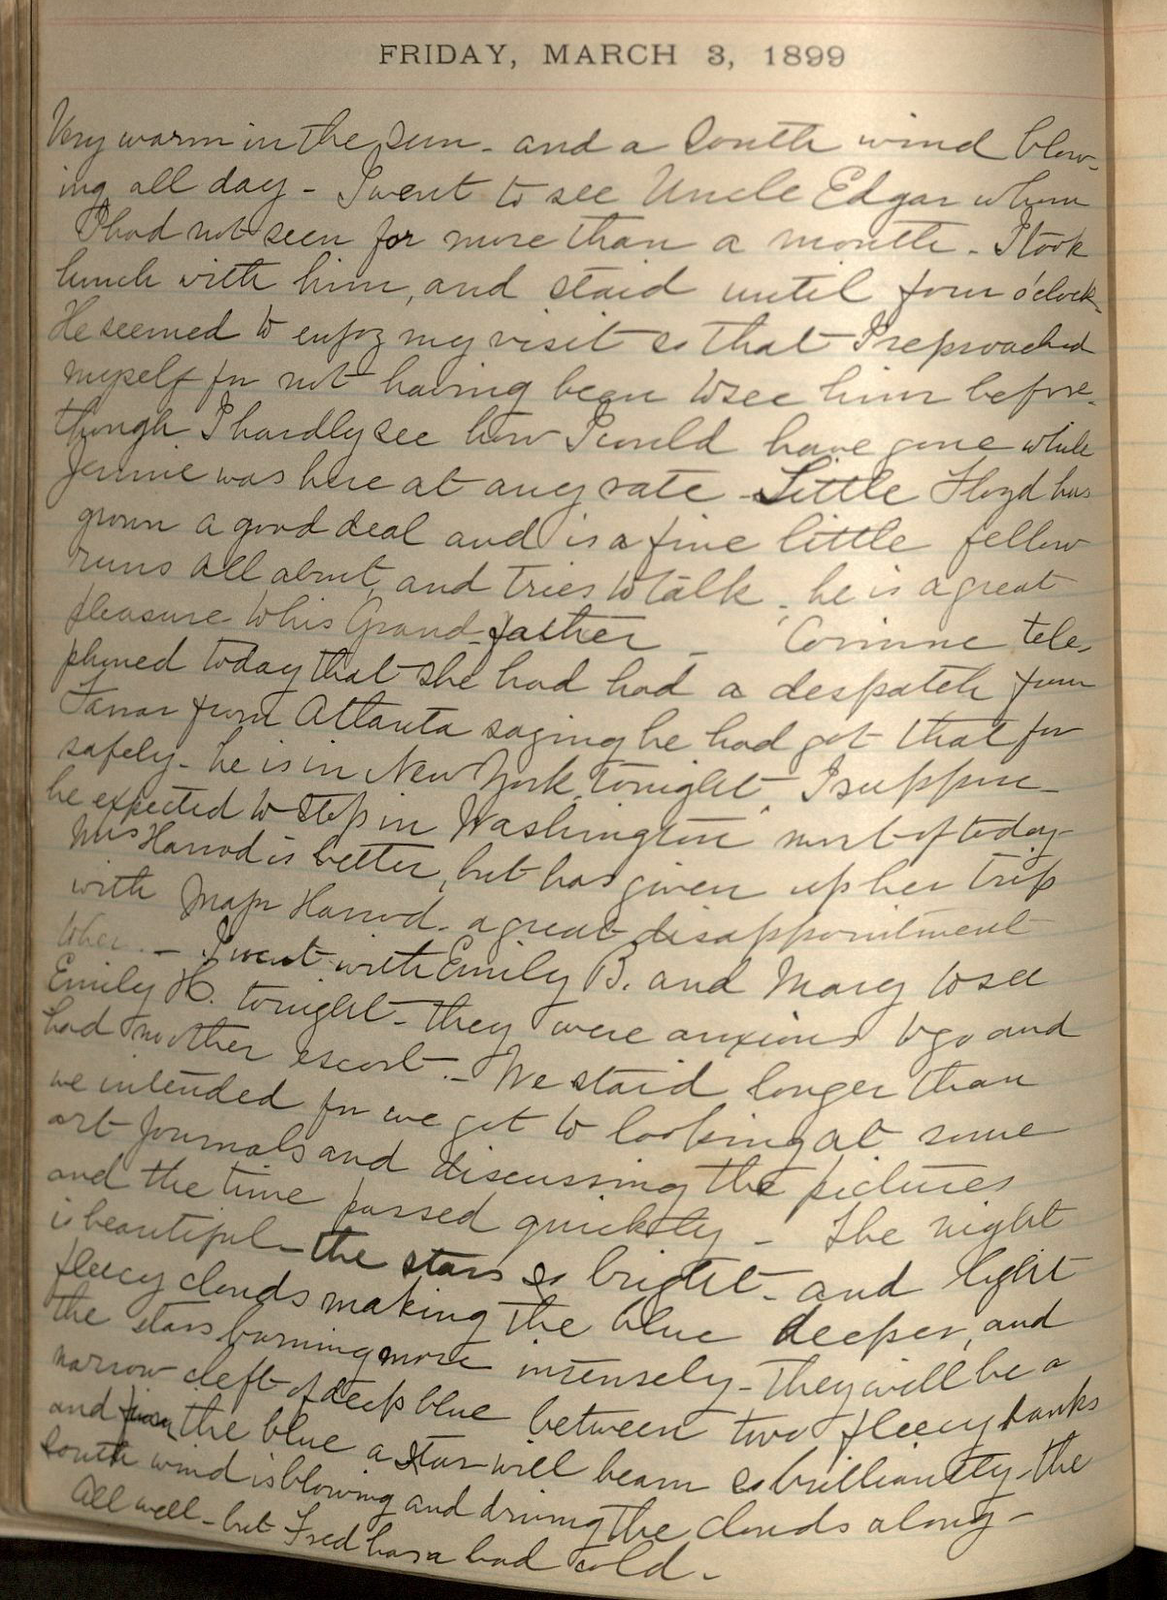 FRIDAY, MARCH 3, 1899
Very warm in the sun - and a South wind blow-
ing all day - I went to see Uncle Edgar whom
I had not seen for more than a month - I took
lunch with him, and staid until four o'clock -
He seemed to enjoy my visit so that I reproached
myself for not having been to see him before -
though I hardly see how I could have gone while
Jennie was here at any rate - Little Floyd has
grown a good deal and is a fine little fellow
runs all about, and tries to talk - he is a great
pleasure to his Grand-father - Corinne tele-
phoned today that she had had a despatch from
Farrar from Atlanta saying he had got that far
safely - he is in New York tonight, I suppose -
he expected to stop in Washington most of today -
Mrs Harrod is better, but has given up her trip
with Major Harrod - a great disappointment
to her. - I went with Emily B. and Mary to see
Emily H. tonight - they were anxious to go and
had no other escort - We staid longer than
we intended for we got to looking at some
art journals and discussing the pictures
and the time passed quickly - The night
is beautiful - the stars so bright - and light
fleecy clouds making the blue deeper, and
the stars burning more intensely - they will be a
narrow cleft of deep blue between two fleecy banks
and from the blue a star will beam so brilliantly - the
South wind is blowing and driving the clouds along -
All well - but Fred has a bad cold -